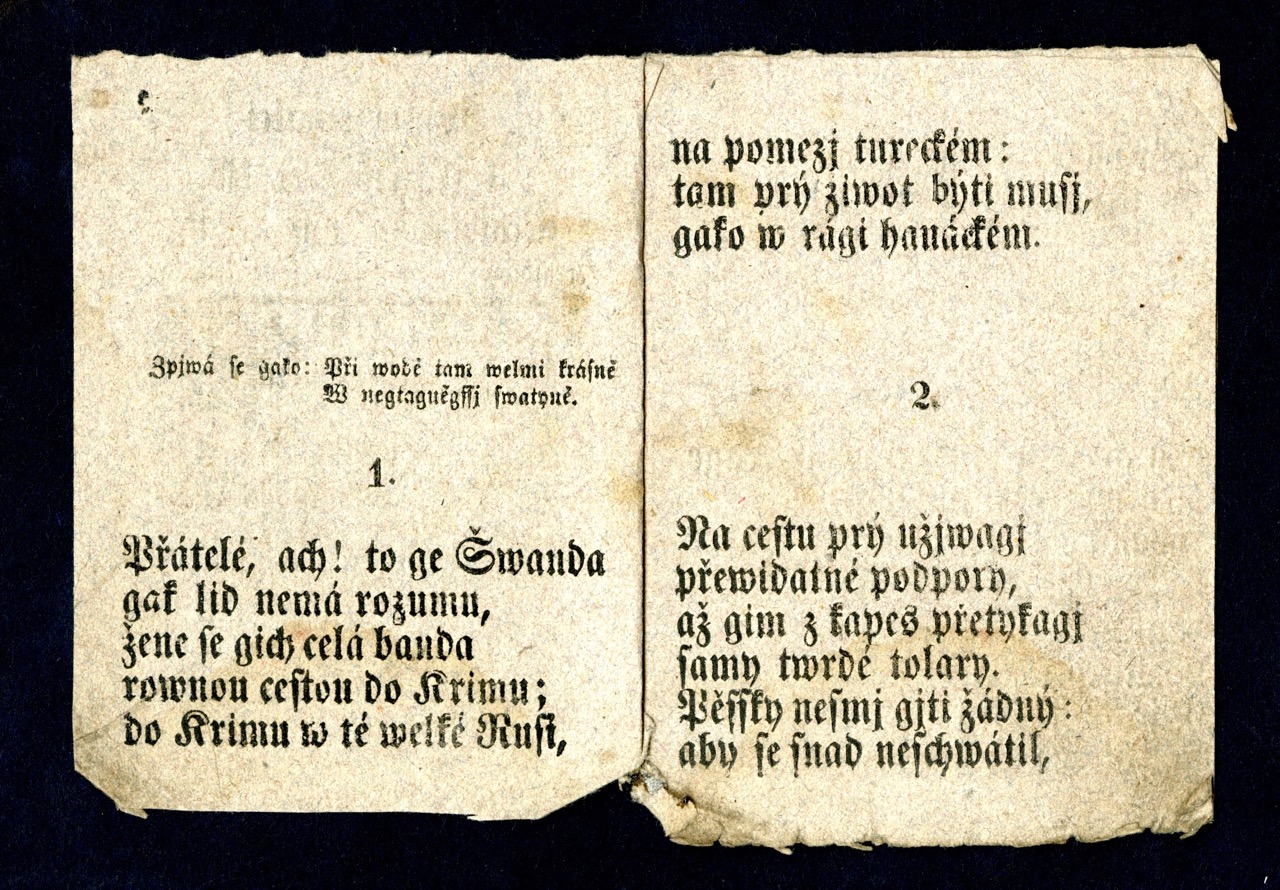 Zpjwá se gako: Při wodě tam welmi krásně
W negtagněgſſj swatyně.
1.
Přátelé, ach! to ge Šwanda
gak lid nemá rozumu,
žene se gich celá banda
rownou ceſtou do Krimu;
do Krimu w té welké Ruſi,
na pomezj tureckém:
tam prý žiwot býti muſj,
gako w rági hanáckém.
2.
Na ceſtu prý užjwagj
přewidatné podpory,
až gim z kapes přetykagj
ſamy twrdé tolary.
Pěſſky neſmj gjti žádný:
aby ſe ſnad neſchwátil,